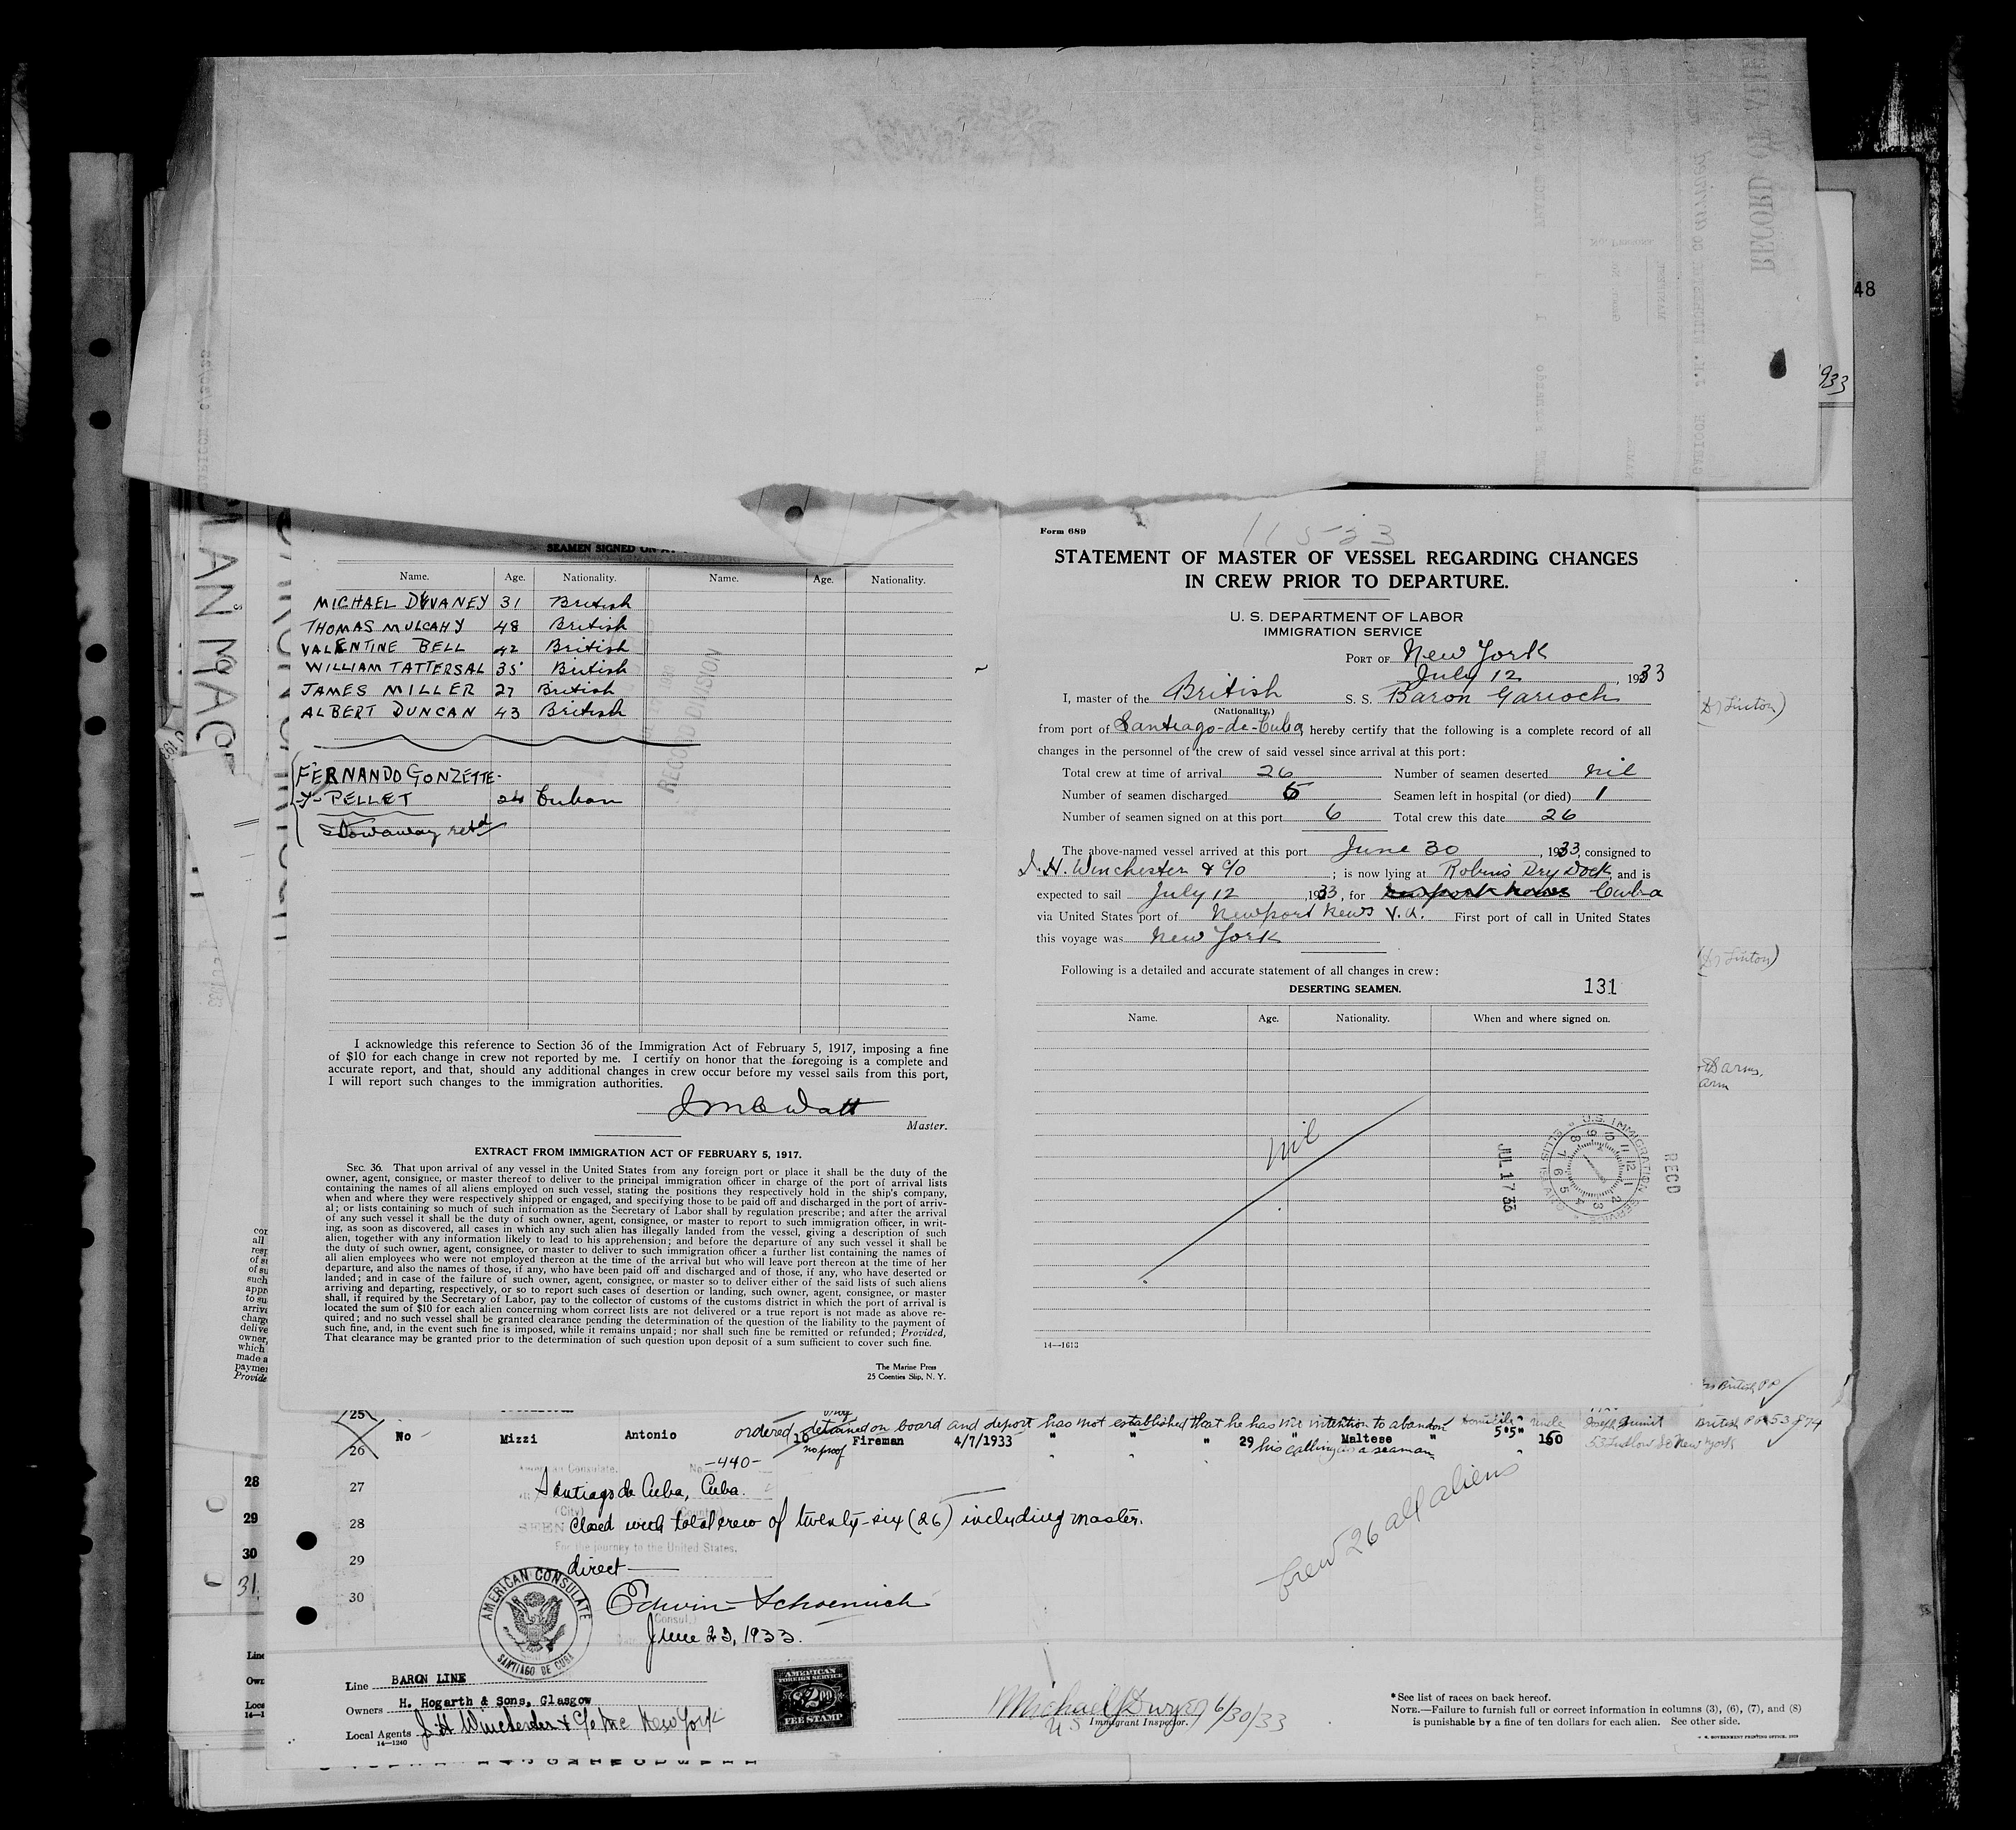 SEAMEN SIGNED ON
Name. Age. Nationality. Name. Age. Nationality.
MICHAEL DEVANEY 31 British
THOMAS MULCAHY 48 British
VALENTINE BELL 42 British
WILLIAM TATTERSAL 35 British
JAMES MILLER 27 British
ALBERT DUNCAN 43 British
FERNANDO GONZETTE-
-Y- PELLET 24 Cuban
Stowaway retd
RECORD DIVISION
I acknowledge this reference to Section 36 of the Immigration Act of February 5, 1917, imposing a fine
of $10 for each change in crew not reported by me. I certify on honor that the foregoing is a complete and
accurate report, and that, should any additional changes in crew occur before my vessel sails from this port,
I will report such changes to the immigration authorities.
Master.
EXTRACT FROM IMMIGRATION ACT OF FEBRUARY 5, 1917.
SEC. 36. That upon arrival of any vessel in the United States from any foreign port or place it shall be the duty of the
owner, agent, consignee, or master thereof to deliver to the principal immigration officer in charge of the port of arrival lists
containing the names of all aliens employed on such vessel, stating the positions they respectively hold in the ship's company,
when and where they were respectively shipped or engaged, and specifying those to be paid off and discharged in the port of arriv-
al; or lists containing so much of such information as the Secretary of Labor shall by regulation prescribe; and after the arrival
of any such vessel it shall be the duty of such owner, agent, consignee, or master to report to such immigration officer, in writ-
ing, as soon as discovered, all cases in which any such alien has illegally landed from the vessel, giving a description of such
alien, together with any information likely to lead to his apprehension; and before the departure of any such vessel it shall be
the duty of such owner, agent, consignee, or master to deliver to such immigration officer a further list containing the names of
all alien employees who were not employed thereon at the time of the arrival but who will leave port thereon at the time of her
departure, and also the names of those, if any, who have been paid off and discharged and of those, if any, who have deserted or
landed; and in case of the failure of such owner, agent, consignee, or master so to deliver either of the said lists of such aliens
arriving and departing, respectively, or so to report such cases of desertion or landing, such owner, agent, consignee, or master
shall, if required by the Secretary of Labor, pay to the collector of customs of the customs district in which the port of arrival is
located the sum of $10 for each alien concerning whom correct lists are not delivered or a true report is not made as above re-
quired; and no such vessel shall be granted clearance pending the determination of the question of the liability to the payment of
such fine, and, in the event such fine is imposed, while it remains unpaid; nor shall such fine be remitted or refunded; Provided,
That clearance may be granted prior to the determination of such question upon deposit of a sum sufficient to cover such fine.
The Marine Press
25 Coenties Slip, N. Y.
Form 689
STATEMENT OF MASTER OF VESSEL REGARDING CHANGES
IN CREW PRIOR TO DEPARTURE.
U. S. DEPARTMENT OF LABOR
IMMIGRATION SERVICE
PORT OF New York
July 12, 1933
I, master of the British S. S. Baron Garioch
(Nationality.)
from port of Santiago-de-Cuba, hereby certify that the following is a complete record of all
changes in the personnel of the crew of said vessel since arrival at this port:
Total crew at time of arrival 26 Number of seamen deserted nil
Number of seamen discharged 5 Seamen left in hospital (or died) 1
Number of seamen signed on at this port 6 Total crew this date 26
The above-named vessel arrived at this port June 30, 1933, consigned to
J. H. Winchester & Co; is now lying at Robins Dry Dock, and is
expected to sail July 12, 1933, for Newport News Cuba
via United States port of Newport News V.A. First port of call in United States
this voyage was New York
Following is a detailed and accurate statement of all changes in crew:
DESERTING SEAMEN. 131
Name. Age. Nationality. When and where signed on.
nil
U.S. IMMIGRATION SERVICE
JUL 17 33
RECD
14—1613
48
25
ordered detained on board and deport has not established that he has no intention to abandon
26 No Mizzi Antonio 10 Fireman 4/7/1933 " " " 29 " Maltese " 5"5" 150
no proof his calling as a seaman
-440-
27 Santiago de Cuba, Cuba.
28 Closed with total crew of twenty-six (26) including master.
SEEN
For the journey to the United States.
29 direct
30 Edwin Schoenrich
(Consul.)
June 23, 1933.
AMERICAN CONSULATE
SANTIAGO DE CUBA
Crew 26 all aliens
28
29
30
31
Line BARON LINE
Owners H. Hogarth & Sons, Glasgow
Local Agents J. H. Winchester & Co Inc New York
14—1240
AMERICAN
FOREIGN SERVICE
$2.00
FEE STAMP
Michael J Dwyer 6/30/33
U S Immigrant Inspector.
*See list of races on back hereof.
NOTE.—Failure to furnish full or correct information in columns (3), (6), (7), and (8)
is punishable by a fine of ten dollars for each alien. See other side.